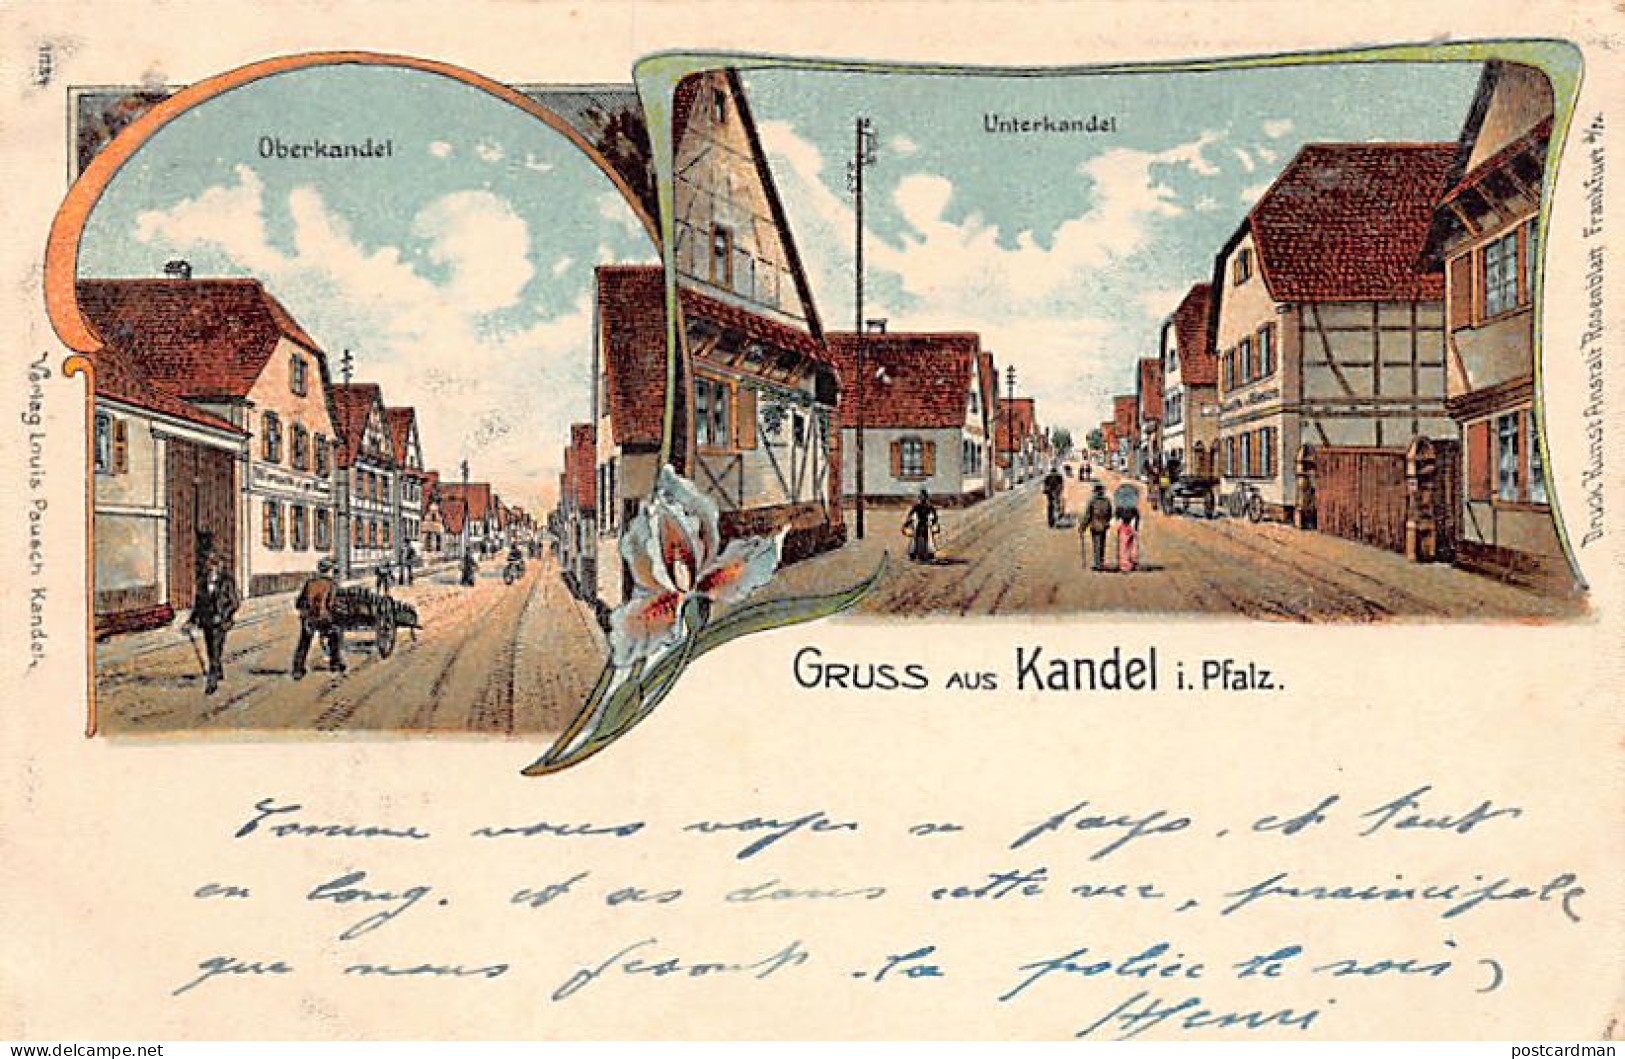 Oberkandel
Unterkandel
GRUSS AUS Kandel i. Pfalz.
Verlag Louis Pausch Kandel.
Druck Kunst-Anstalt Rosenblatt Frankfurt a/M.
Comme vous voyez pays, et tout
en long. et dans cette rue, principale
que nous la police le soir,
Henri
delcampe.net
postcardman